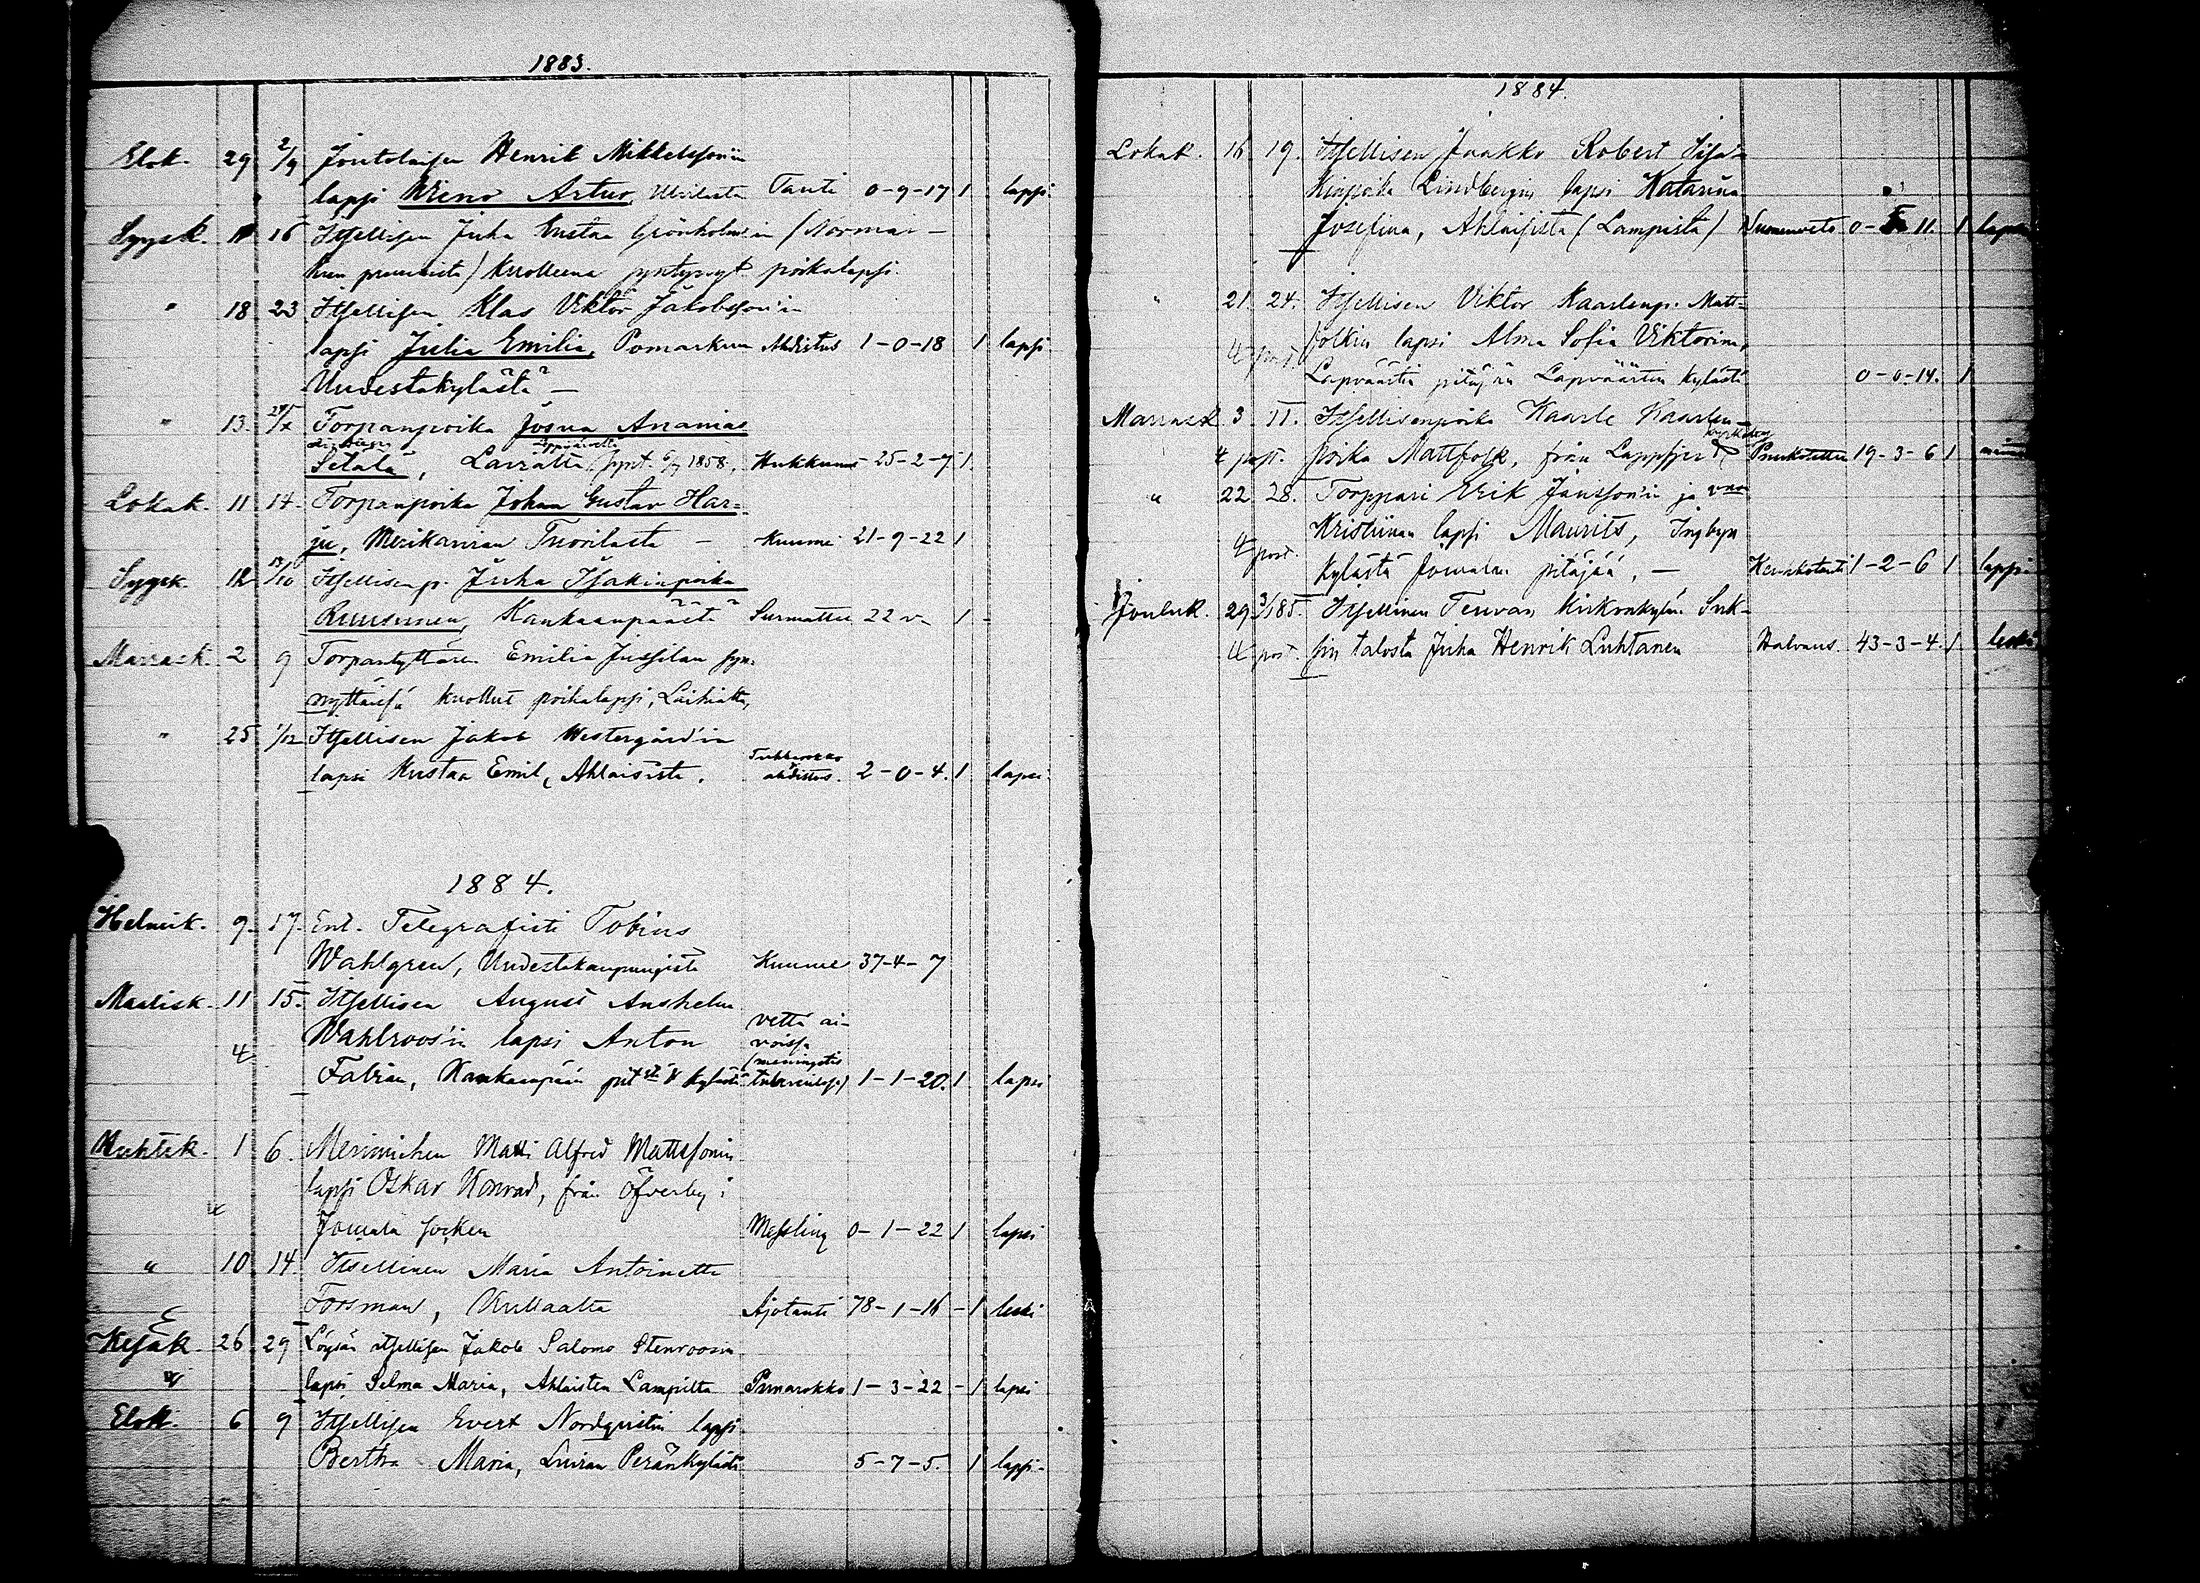 1883.
Elok. 29 2/9 Joutolaisen Henrik Mikkelssonin
lapsi Wieno Artur, Ulvilasta Tauti 0-9-17 1 lapsi.
Syysk. 11 16 Itsellisen Juha Gustaa Grönholmin (Normar-
kun pruukista) kuolleena syntynyt poikalapsi.
" 18 23 Itsellisen Klas Viktor Jakobsson'in
lapsi Julia Emilia, Pomarkun Ahdistus 1-0-18 1 lapsi
Uudestakylästä —
" 13. Torpanpoika Josua Ananias
Setälä, Lavialta, synt. 1858. Hukkunut 25-2-7 1.
Lokak. 11 14. Torpanpoika Johan Gustav Har=
ju, Merikarvian Tuorilasta — Kuume 21-9-22 1
Syysk. 12 /10 Itsellisenp. Juha Isakinpoika
Ruusunen, Kankaanpäästä Surmattu 22 v. 1 -
Marrask. 2 9 Torpantyttären Emilia Jussilan syn-
nyttäissä kuollut poikalapsi, Laihialta,
" 25 1/12 Itsellisen Jakob Westergård'in
lapsi Kustaa Emil, Ahlaisista. Tuhkarokko ahdistus. 2-0-4. 1 lapsi
1884.
Helmik. 9. 17. Ent. Telegrafisti Tobias
Wahlgren, Uudestakaupungista Kuume 37-4-7
Maalisk. 11 15. Itsellisen August Anshelm
Wahlroos'in lapsi Anton vettä ai-
voissa
4 Fabian, Kankaanpään pit kylästä (meningitis tuberculosa) 1-1-20. 1 lapsi
Huhtik. 1 6. Merimiehen Matti Alfred Mattssonin
lapsi Oskar Konrad, från Öfverby i
Jomala socken Messling 0-1-22 1 lapsi
" 10 14. Itsellinen Maria Antoinette
Forsman, Kullaalta Ajotauti 78-1-16 -1 leski
Kesäk. 26 29 Löysän itsellisen Jakob Salomo Stenroosin
lapsi Selma Maria, Ahlaisten Lampilta Punarokko 1-3-22 -1 lapsi
Elok. 6 9 Itsellisen Evert Nordqvistin lapsi
Bertha Maria, Luvian Peränkylästä 5-7-5. 1 lapsi.
1884.
Lokak. 16 19. Itsellisen Jaakko Robert Isa-
kinpoika Lindbergin lapsi Katarina
Josefina, Ahlaisista (Lampista) 0- 11. 1 lapsi
" 21. 24. Itsellisen Viktor Kaarlenp. Matt-
folkin lapsi Alma Sofia Viktorina,
Lapväärtin pitäjän Lapväärtin kylästä 0-0-14. 1
Marrask. 3 11. Itsellisenpoika Kaarle Kaarlen-
post. poika Mattfolk, från Lappfjerd 19-3-6 1
" 22 28. Torppari Erik Jansson'in ja vaimo
Kristiinan lapsi Maurits, Ingbyn
post. kylästä Jomalan pitäjää, — 1-2-6 1 lapsi
Jouluk. 29 3/1 85. Itsellinen Teuvan Kirkonkylän Suk-
post. sin talosta Juha Henrik Luhtanen Halvaus. 43-3-4. 1 leski